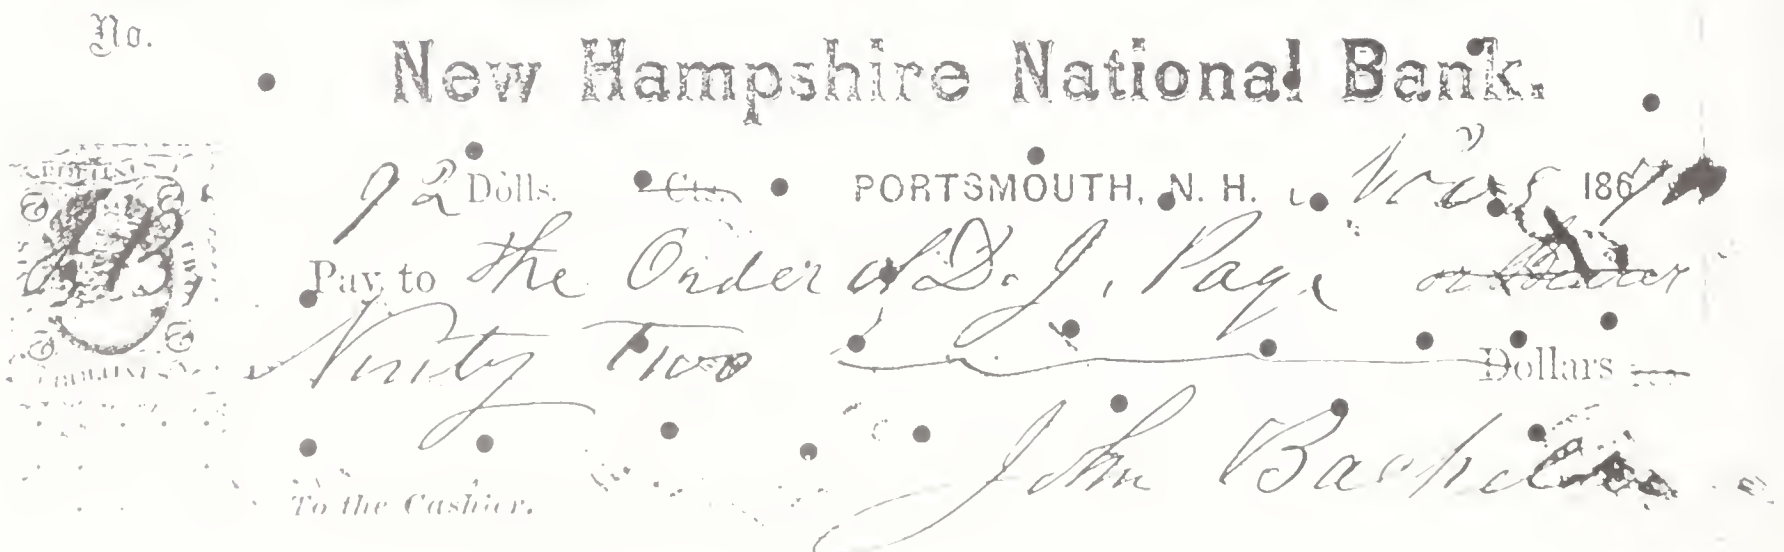 No.
New Hampshire National Bank.
92 Dolls. Cts. PORTSMOUTH, N. H., Nov 5 186
Pay to the Order of D. J. Page or Bearer
Ninety Two Dollars
John
To the Cashier.